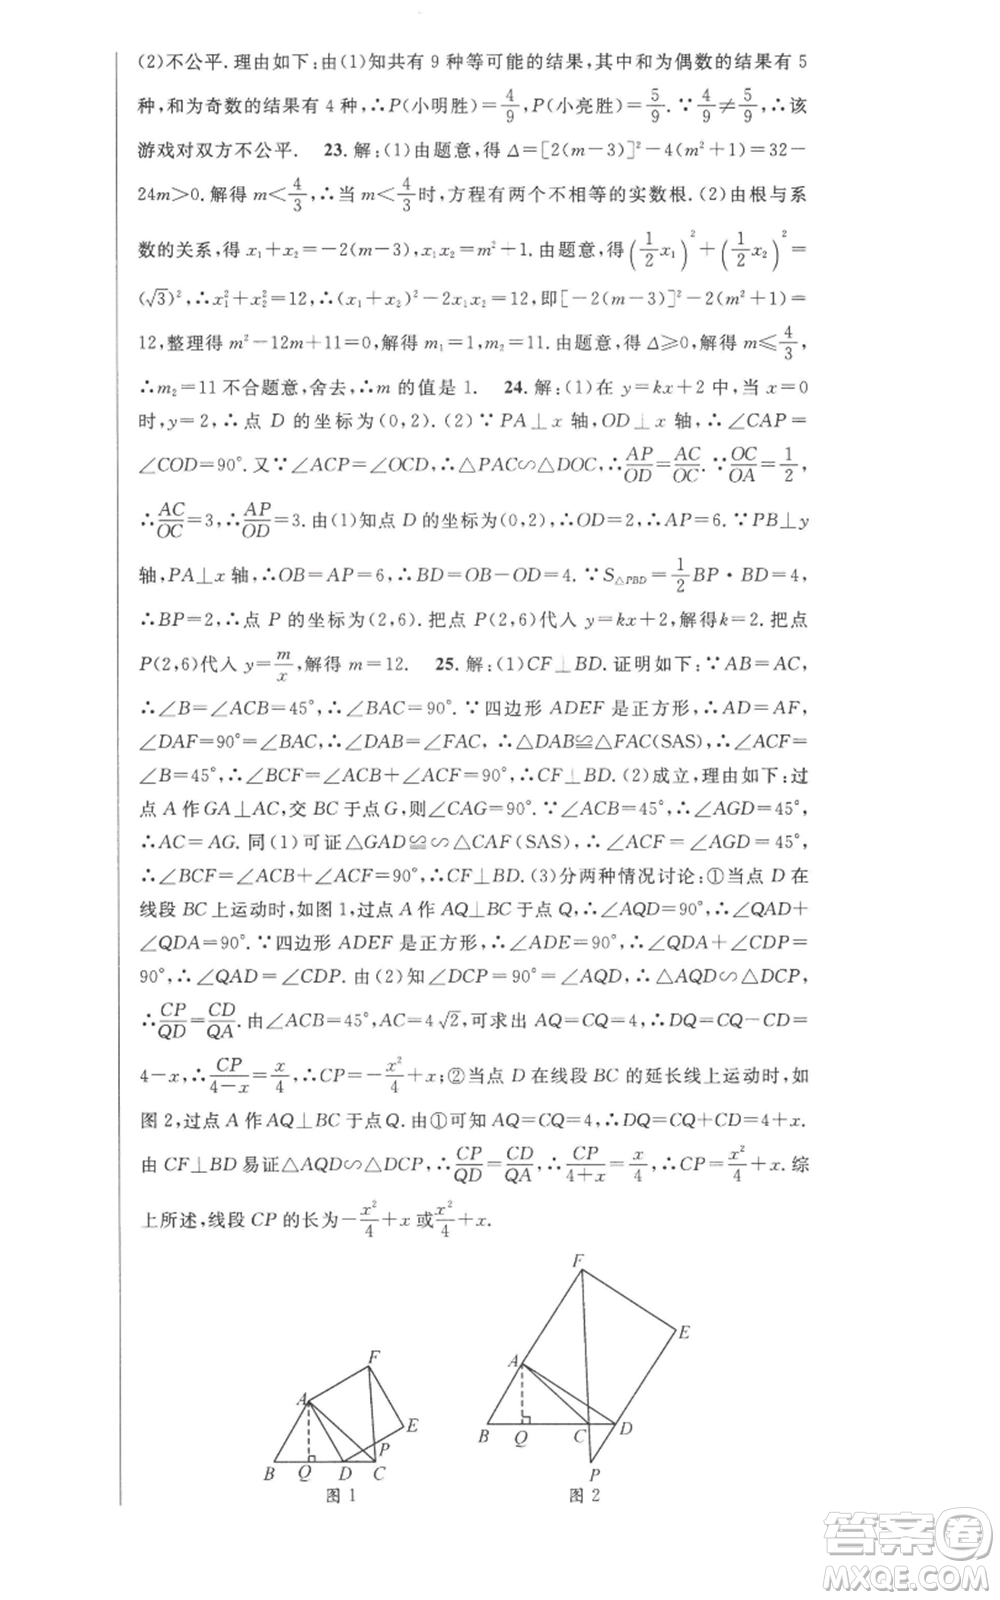 (2)不公平.理由如下:由(1)知共有 9 种等可能的结果,其中和为偶数的结果有 5
种,和为奇数的结果有 4 种,∴P(小明胜)=4/9,P(小亮胜)=5/9.∵4/9≠5/9,∴该
游戏对双方不公平. 23.解:(1)由题意,得 Δ=[2(m-3)]²-4(m²+1)=32-
24m>0.解得 m<4/3,∴当 m<4/3时,方程有两个不相等的实数根.(2)由根与系
数的关系,得 x₁+x₂=-2(m-3),x₁x₂=m²+1.由题意,得(1/2 x₁)²+(1/2 x₂)²=
(√3)²,∴x₁²+x₂²=12,∴(x₁+x₂)²-2x₁x₂=12,即[-2(m-3)]²-2(m²+1)=
12,整理得 m²-12m+11=0.解得 m₁=1,m₂=11.由题意,得 Δ≥0,解得 m≤4/3,
∴m₂=11 不合题意,舍去,∴m 的值是 1. 24.解:(1)在 y=kx+2 中,当 x=0
时,y=2,∴点 D 的坐标为(0,2).(2)∵PA⊥x 轴,OD⊥x 轴,∴∠CAP=
∠COD=90°.又∵∠ACP=∠OCD,∴△PAC∽△DOC,∴AP/OD=AC/OC.∵OC/OA=1/2,
∴AC/OC=3,∴AP/OD=3.由(1)知点 D 的坐标为(0,2),∴OD=2,∴AP=6.∵PB⊥y
轴,PA⊥x 轴,∴OB=AP=6,∴BD=OB-OD=4.∵S△PBD=1/2 BP·BD=4,
∴BP=2,∴点 P 的坐标为(2,6).把点 P(2,6)代入 y=kx+2,解得k=2.把点
P(2,6)代入 y=m/x,解得 m=12. 25.解:(1)CF⊥BD.证明如下:∵AB=AC,
∴∠B=∠ACB=45°,∴∠BAC=90°.∵四边形 ADEF 是正方形,∴AD=AF,
∠DAF=90°=∠BAC,∴∠DAB=∠FAC,∴△DAB≌△FAC(SAS),∴∠ACF=
∠B=45°,∴∠BCF=∠ACB+∠ACF=90°,∴CF⊥BD.(2)成立,理由如下:过
点 A 作 GA⊥AC,交 BC 于点 G,则∠CAG=90°.∵∠ACB=45°,∴∠AGD=45°,
∴AC=AG.同(1)可证△GAD≌∽△CAF(SAS),∴∠ACF=∠AGD=45°,
∴∠BCF=∠ACB+∠ACF=90°,∴CF⊥BD.(3)分两种情况讨论:①当点 D 在
线段 BC 上运动时,如图 1,过点 A 作 AQ⊥BC 于点 Q,∴∠AQD=90°,∴∠QAD+
∠QDA=90°.∵四边形 ADEF 是正方形,∴∠ADE=90°,∴∠QDA+∠CDP=
90°,∴∠QAD=∠CDP.由(2)知∠DCP=90°=∠AQD,∴△AQD∽△DCP,
∴CP/QD=CD/QA.由∠ACB=45°,AC=4√2,可求出 AQ=CQ=4,∴DQ=CQ-CD=
4-x,∴CP/(4-x)=x/4,∴CP=-x²/4+x;②当点 D 在线段 BC 的延长线上运动时,如
图 2,过点 A 作 AQ⊥BC 于点Q.由①可知 AQ=CQ=4,∴DQ=CQ+CD=4+x.
由 CF⊥BD 易证△AQD∽△DCP,∴CP/QD=CD/QA,∴CP/(4+x)=x/4,∴CP=x²/4+x.综
上所述,线段 CP 的长为-x²/4+x 或x²/4+x.
F
E
A
B Q C D
P
图 2
F
A
E
P
B Q D C
图 1
答案卷
MXQE.COM